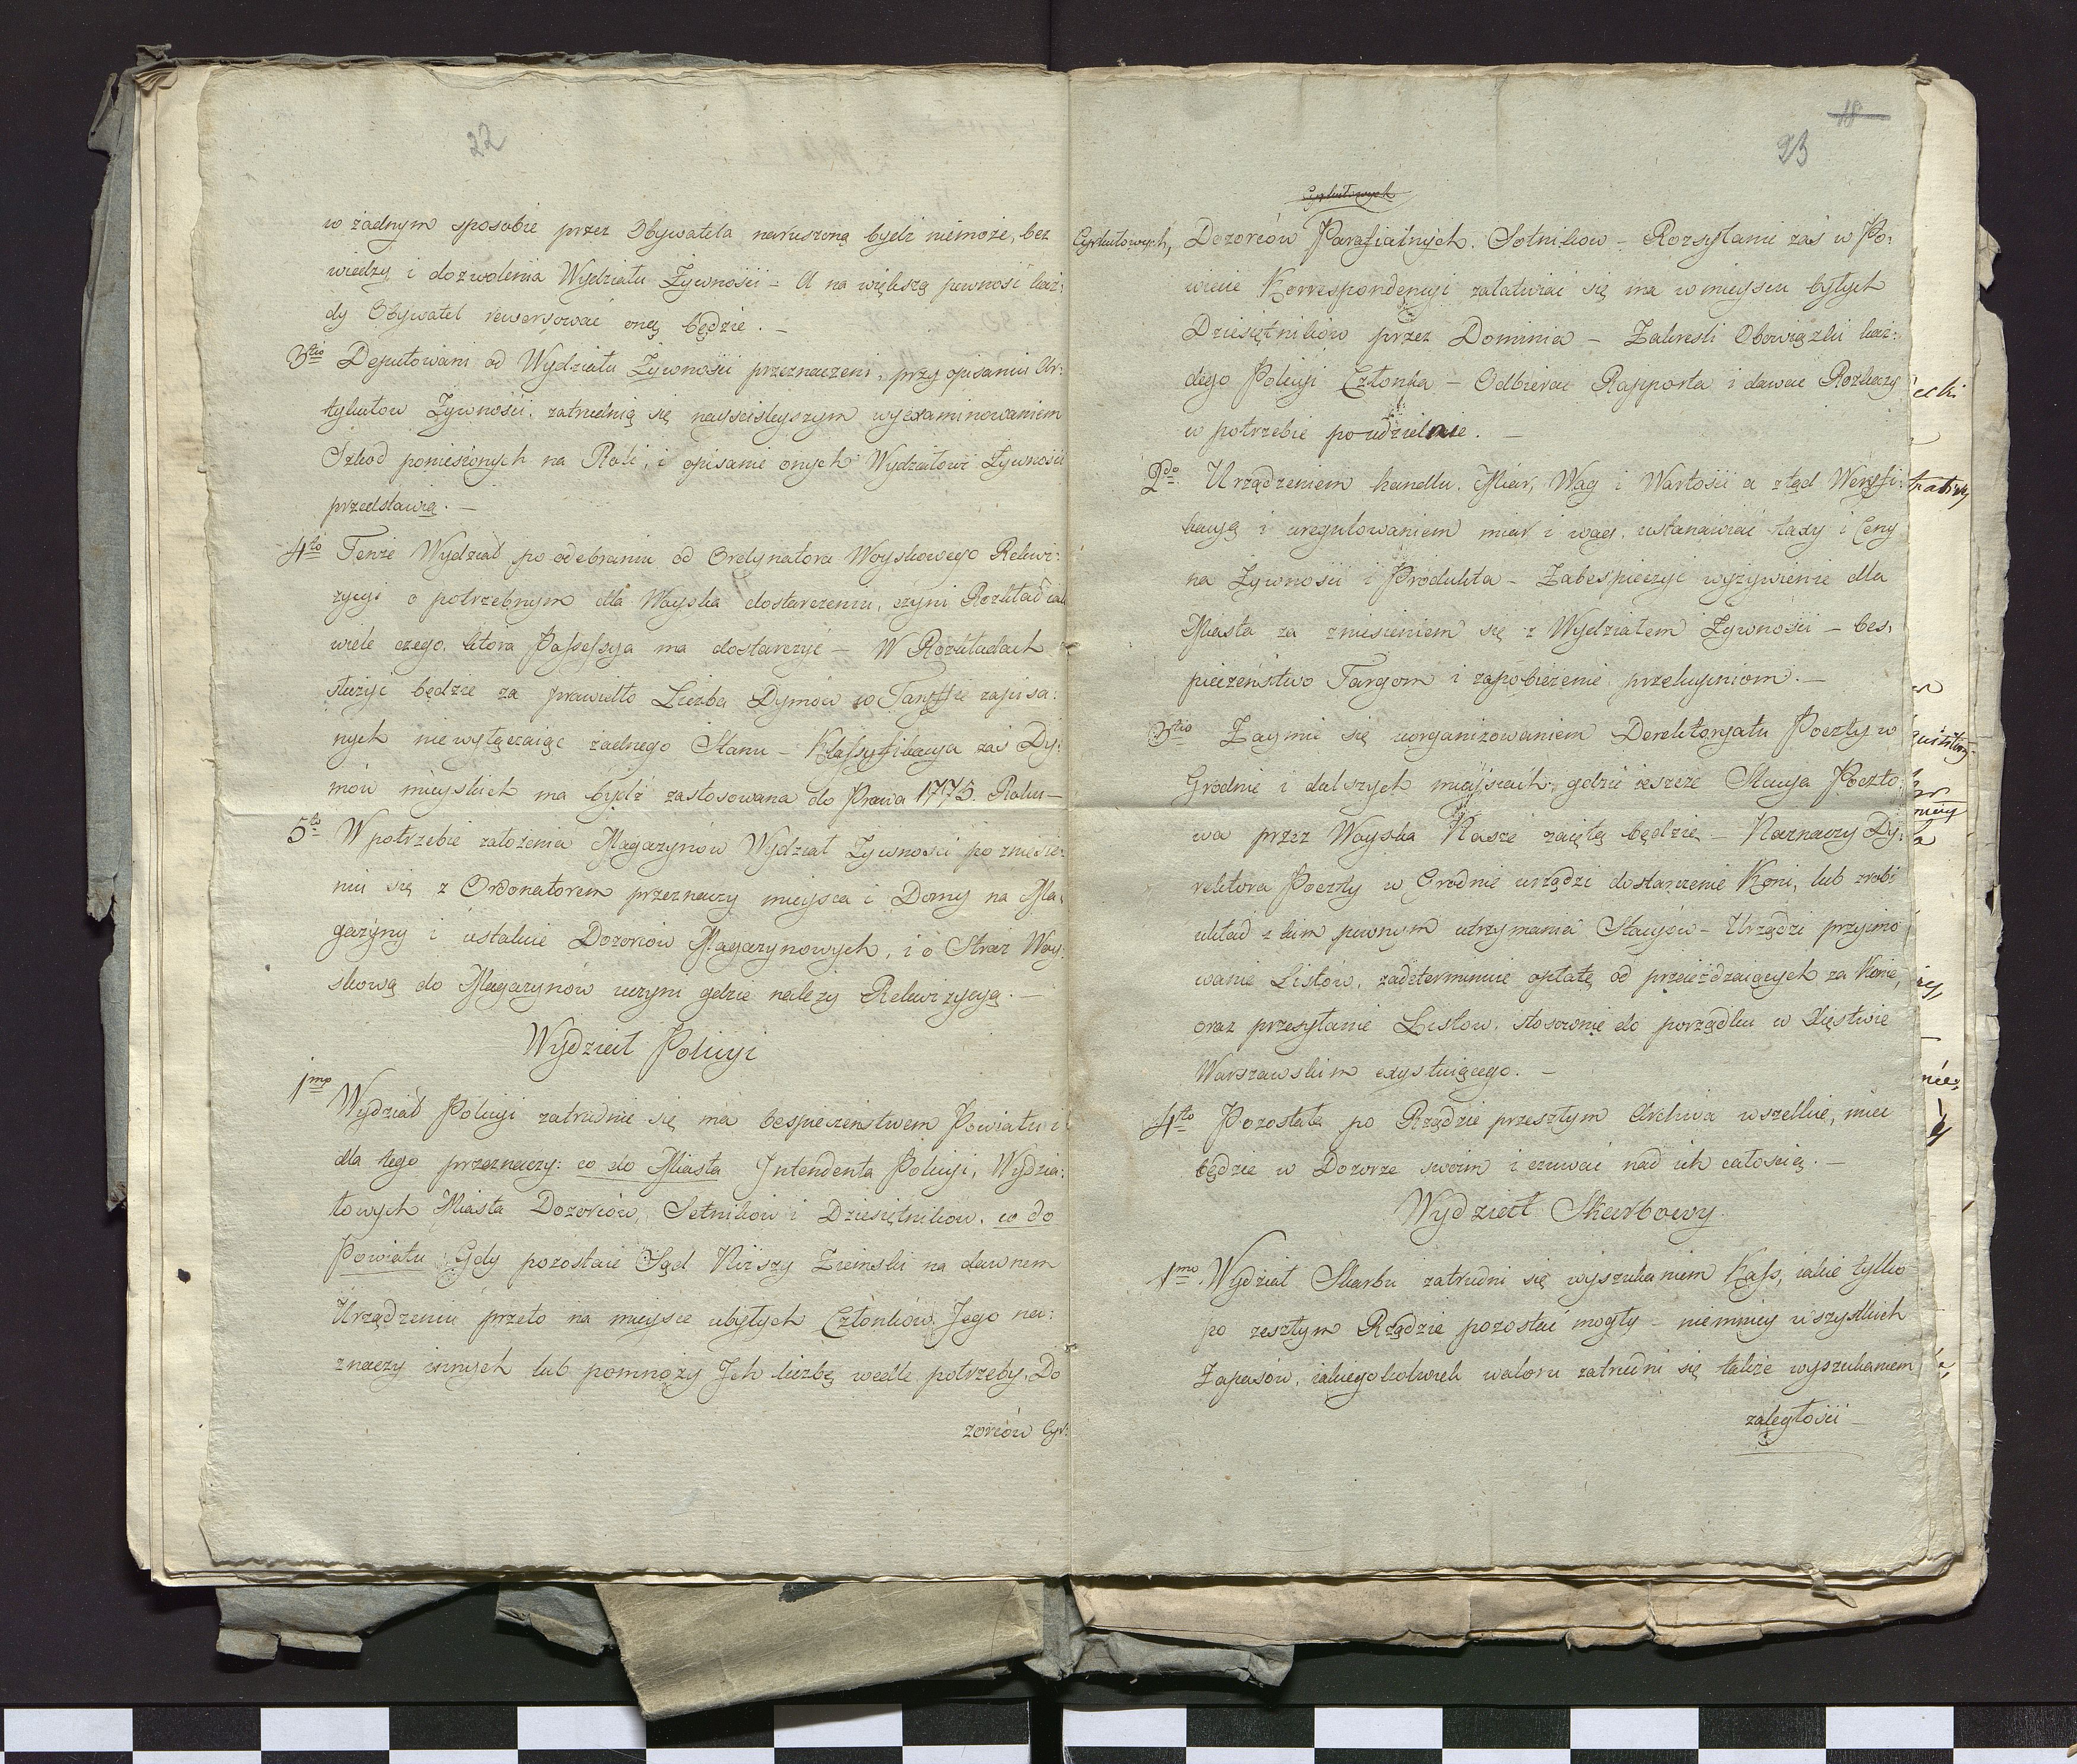 22
w żadnym sposobie przez Obywatela naruszoną bydź niemoże, bez
wiedzy i dozwolenia Wydziału Żywności – A na większą pewność każ:
dy Obywatel rewersować onę będzie. –
3tio Deputowani od Wydziału Żywności przeznaczeni, przy opisaniu Ar:
tykułow Żywności, zatrudnią się nayściśleyszym wyexaminowaniem
Szkod poniesionych na Roli, i opisanie onych Wydziałowi Żywności
przedstawią. –
4to Tenże Wydział po odebraniu od Ordynatora Woyskowego Rekwi:
zycyi o potrzebnym dla Woyska dostarczeniu, czyni Rozkład iak
wiele czego, ktora Possessya ma dostarczyć – W Rozkładach
służyć będzie za prawidło Liczba Dymów w Taryffie zapisa:
nych niewyłączaiąc żadnego Stanu – Klassyfikacya zaś Dy:
mów mieyskich ma bydź zastosowana do Prawa 1775. Roku –
5to W potrzebie założenia Magazynow Wydział Żywności po zniesie:
niu się z Ordonatorem przeznaczy mieysca i Domy na Ma:
gazyny i ustaluie Dozorców Magazynowych, i o Straż Woy:
skową do Magazynów uczyni gdzie należy Rekwizycyą. –
Wydział Policyi
1mo Wydział Policyi zatrudnić się ma bespieczeństwem Powiatu i
dla tego przeznaczy: co do Miasta Intendenta Policyi, Wydzia:
łowych Miasta Dozorców, Setników i Dziesiętnikow. co do
Powiatu Gdy pozostaie Sąd Niższy Ziemski na dawnem
Urządzeniu przeto na mieysce ubyłych Członków Jego na:
znaczy innych lub pomnoży Jch liczbę wedle potrzeby. Do
zorców Cyr:
18
23
Cyrkułowych
Cyrkułowych, Dozorców Parafialnych. Sotnikow – Rozsyłanie zaś w Po:
wiecie Korrespondencyi załatwiać się ma w mieyscu byłych
Dziesiętników przez Dominia – Zakreśli Obowiązki każ:
dego Policyi Członka – Odbierać Rapporta i dawać Rozkazy
w potrzebie poudzielnie. –
2do Urządzeniem handlu. Miar, Wag i Wartości a ztąd Weryfi:
kacyą i uregulowaniem miar i wag, ustanawiać taxy i Ceny
na Żywności i Produkta – Zabespieczyć wyżywienie dla
Miasta za zniesieniem się z Wydziałem Żywności – bes:
pieczeństwo Targom i zapobieżenie przekupniom. –
3tio Zaymie się uorganizowaniem Derektoryatu Poczty w
Grodnie i dalszych mieyscach, gdzie ieszcze Stacya Poczto:
wa przez Woyska Nasze zaiętą będzie – Naznaczy Dy:
rektora Poczty w Grodnie urządzi dostarczenie Koni, lub zrobi
układ z kim pewnym utrzymania Stacyów – Urządzi przyimo
wanie Listów, zadeterminuie opłatę od przeieżdzaiących za Konie,
oraz przesyłanie Listow, stosownie do porządku w Xięstwie
Warszawskim exystuiącego. –
4to Pozostałe po Rządzie przeszłym Archiwa wszelkie, mieć
będzie w Dozorze swoim i czuwać nad ich całością. –
Wydział Skarbowy
1mo. Wydział Skarbu zatrudni się wyszukaniem Kass, iakie tylko
po zeszłym Rządzie pozostać mogły – niemniey wszystkich
Zapasów, iakiegokolwiek waloru zatrudni się także wyszukaniem
zaległości –